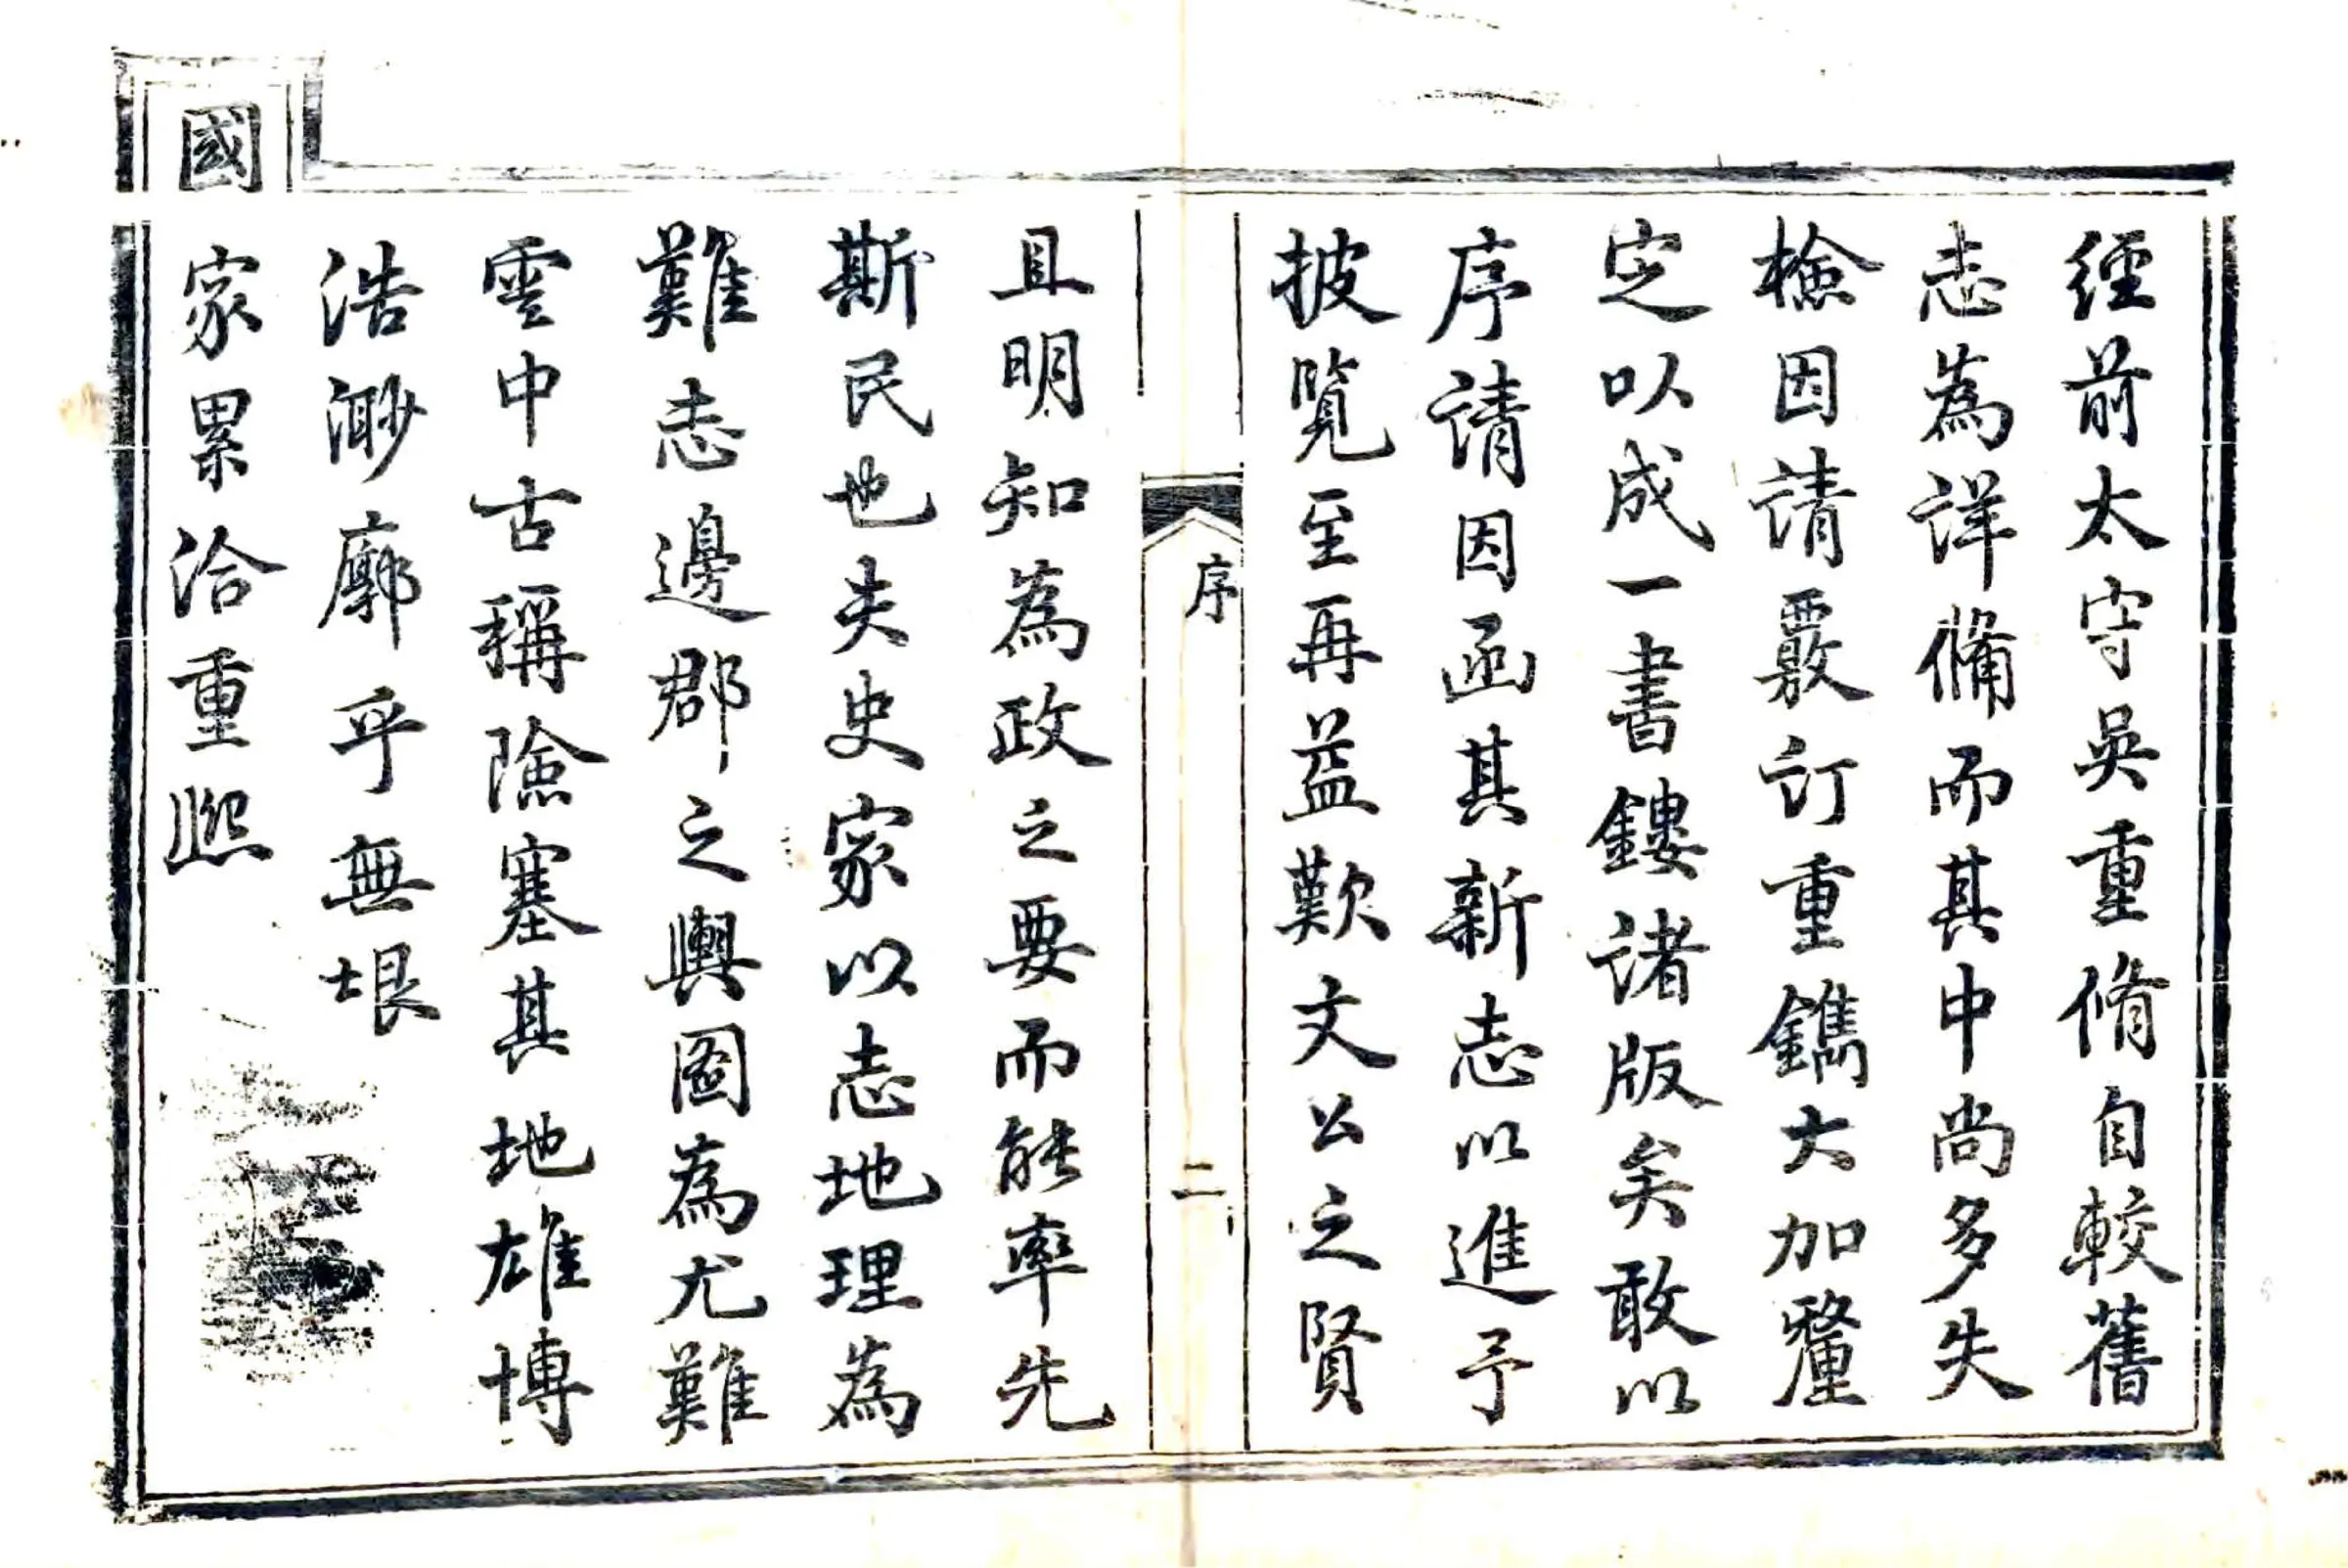 經前太守吳重脩自較舊
志為詳備而其中尚多失
檢因請覈訂重鐫大加釐
定以成一書鏤諸版矣敢以
序請因函其新志以進予
披覽至再益歎文公之賢
序
二
且明知為政之要而能率先
斯民也夫史家以志地理為
難志邊郡之輿圖為尤難
雲中古稱險塞其地雄博
浩渺廓乎無垠
國
家累洽重熙